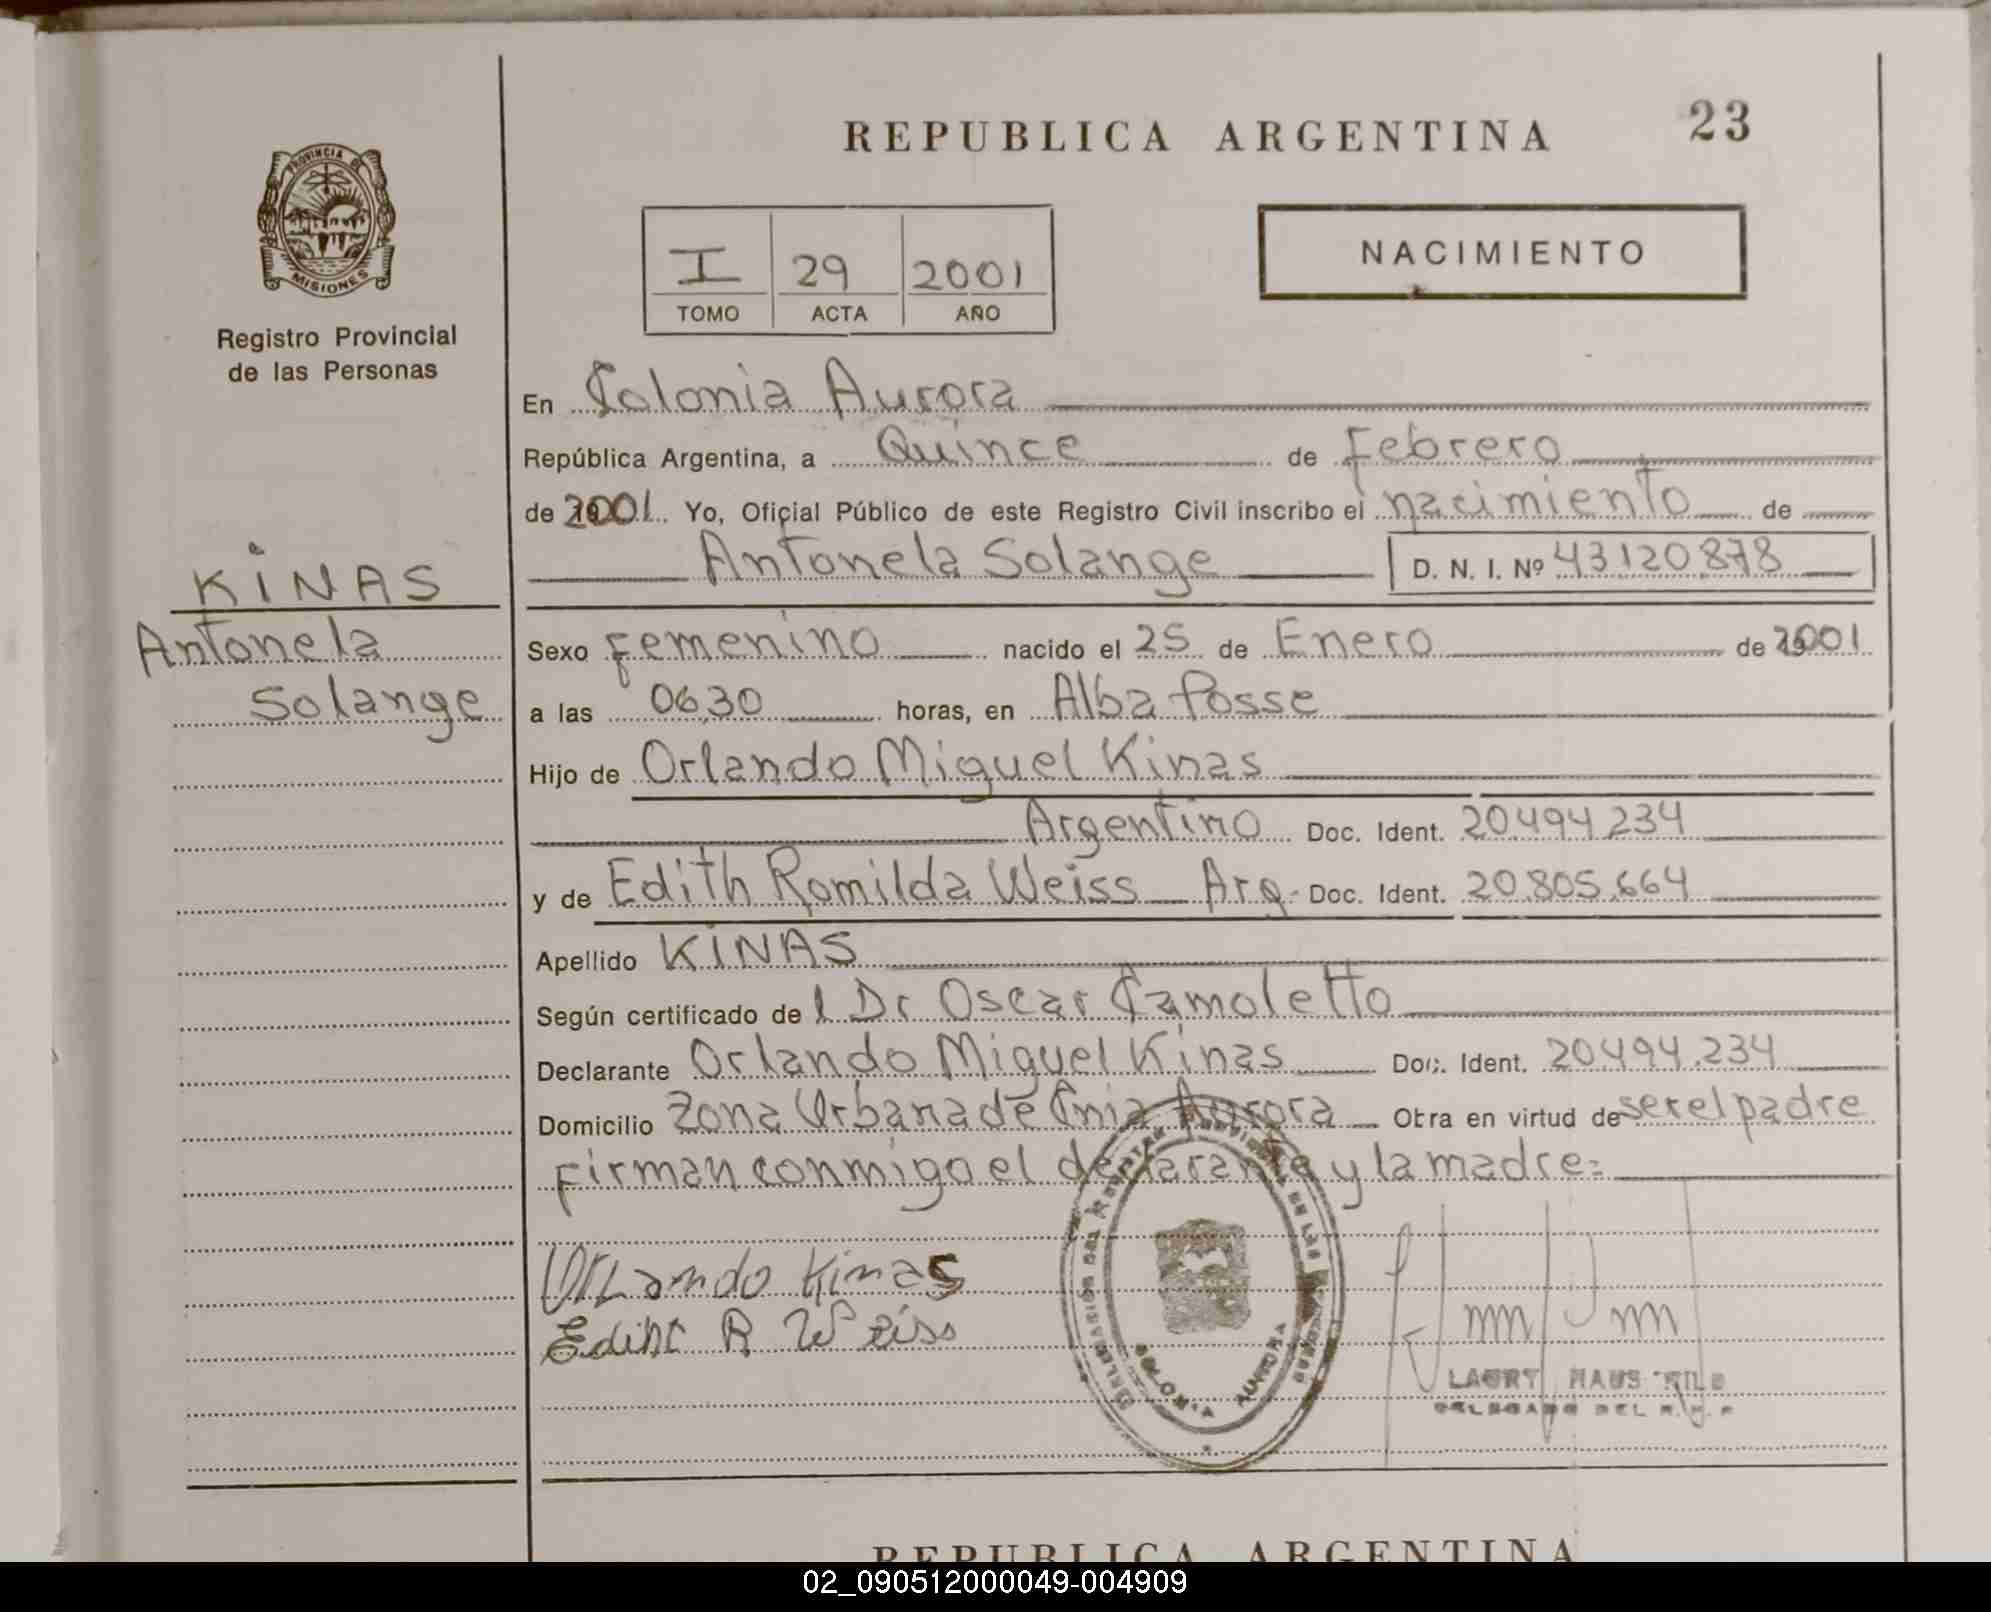 REPUBLICA ARGENTINA 23
PROVINCIA DE
MISIONES
Registro Provincial
de las Personas
I 29 2001
TOMO ACTA AÑO
NACIMIENTO
En Colonia Aurora
República Argentina, a Quince de Febrero
de 2001. Yo, Oficial Público de este Registro Civil inscribo el nacimiento de
Antonela Solange D. N. I. Nº 43120.878
KINAS
Antonela
Solange
Sexo Femenino nacido el 25 de Enero de 2001
a las 06,30 horas, en Alba Posse
Hijo de Orlando Miguel Kinas
Argentino Doc. Ident. 20.494.234
y de Edith Romilda Weiss Arg. Doc. Ident. 20.805.664
Apellido KINAS
Según certificado de l Dr Oscar Camoletto
Declarante Orlando Miguel Kinas Doc. Ident. 20.494.234
Domicilio Zona Urbana de Cnia Aurora Otra en virtud de ser el padre
Firman conmigo el declarante y la madre=
Orlando Kinas
Ediht R Weiss
COLONIA AURORA
DELEGADO DEL R.P.P
REPUBLICA ARGENTINA
02_090512000049-004909